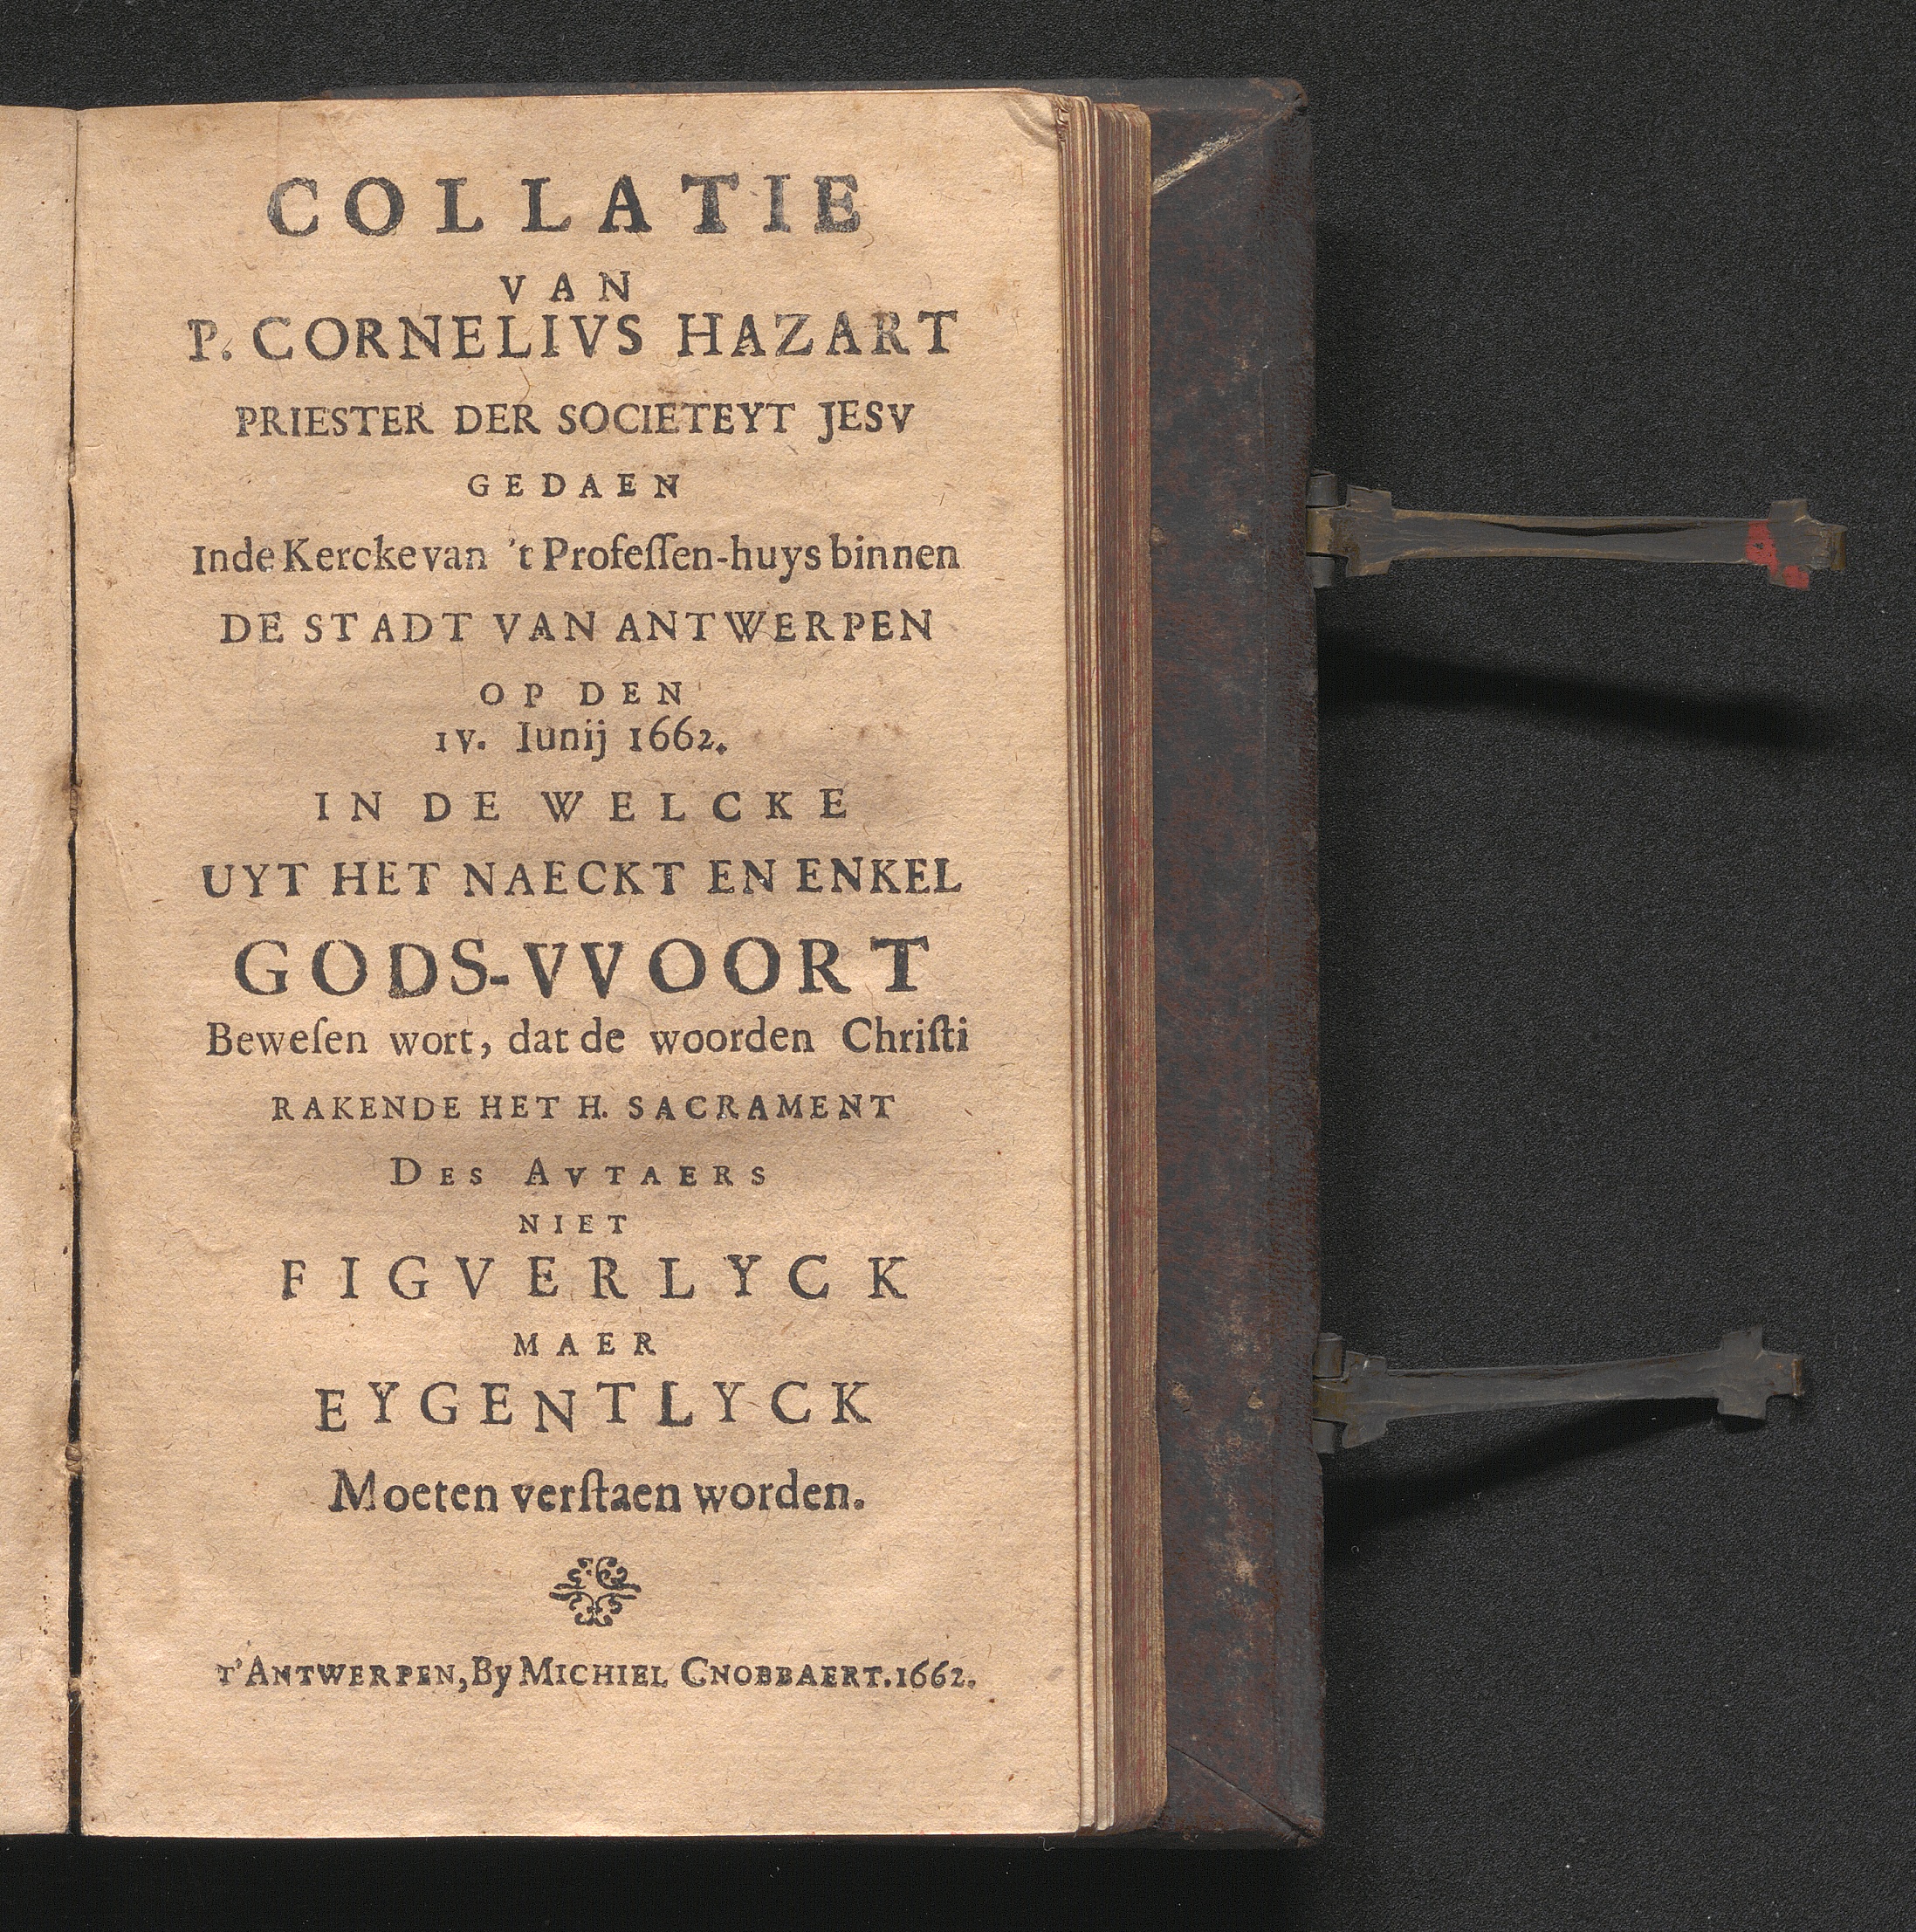 COLLATIE
VAN
P. CORNELIVS HAZART
PRIESTER DER SOCIETEYT JESV
GEDAEN
Inde Kercke van 't Profeſſen-huys binnen
DE STADT VAN ANTWERPEN
OP DEN
IV. Iunij 1662.
IN DE WELCKE
UYT HET NAECKT EN ENKEL
GODS-VVOORT
Beweſen wort, dat de woorden Chriſti
RAKENDE HET H. SACRAMENT
DES AVTAERS
NIET
FIGVERLYCK
MAER
EYGENTLYCK
Moeten verſtaen worden.
T'ANTWERPEN, By MICHIEL CNOBBAERT. 1662.